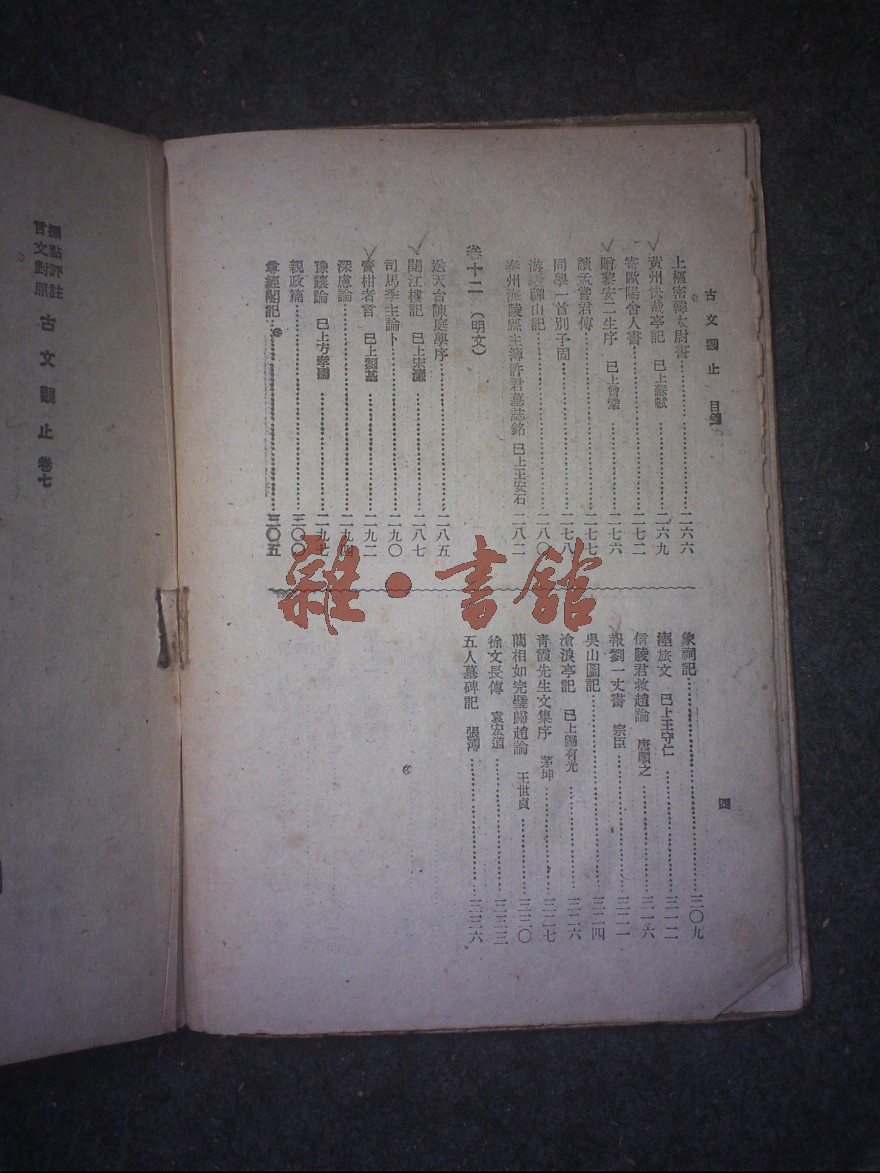 古文觀止 目錄
上樞密韓太尉書……二六六
黃州快哉亭記 已上蘇轍……二六九
寄歐陽舍人書……二七二
贈黎安二生序 已上曾鞏……二七六
讀孟嘗君傳……二七七
同學一首別子固……二七八
遊褒禪山記……二八〇
泰州海陵縣主簿許君墓誌銘 已上王安石……二八二
卷十二（明文）
送天台陳庭學序……二八五
閱江樓記 已上宋濂……二八七
司馬季主論卜……二九〇
賣柑者言 已上劉基……二九二
深慮論……二九四
豫讓論 已上方孝孺……二九七
親政篇……三〇〇
尊經閣記……三〇五
象祠記……三〇九
瘞旅文 已上王守仁……三一二
信陵君救趙論 唐順之……三一六
報劉一丈書 宗臣……三二一
吳山圖記……三二四
滄浪亭記 已上歸有光……三二六
青霞先生文集序 茅坤……三二七
藺相如完璧歸趙論 王世貞……三三〇
徐文長傳 袁宏道……三三三
五人墓碑記 張溥……三三六
四
標點評註
言文對照
古文觀止 卷七
雜·書館